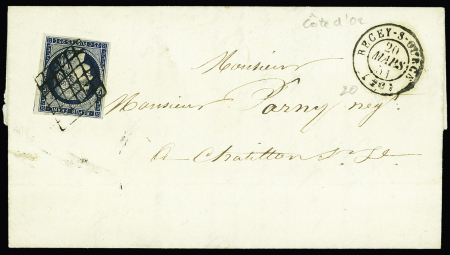 Côte d'Or
RECEY-S-OURCE
20
MARS
51
(20)
20
Monsieur
Monsieur Parny negt
a Chatillon Sr Se